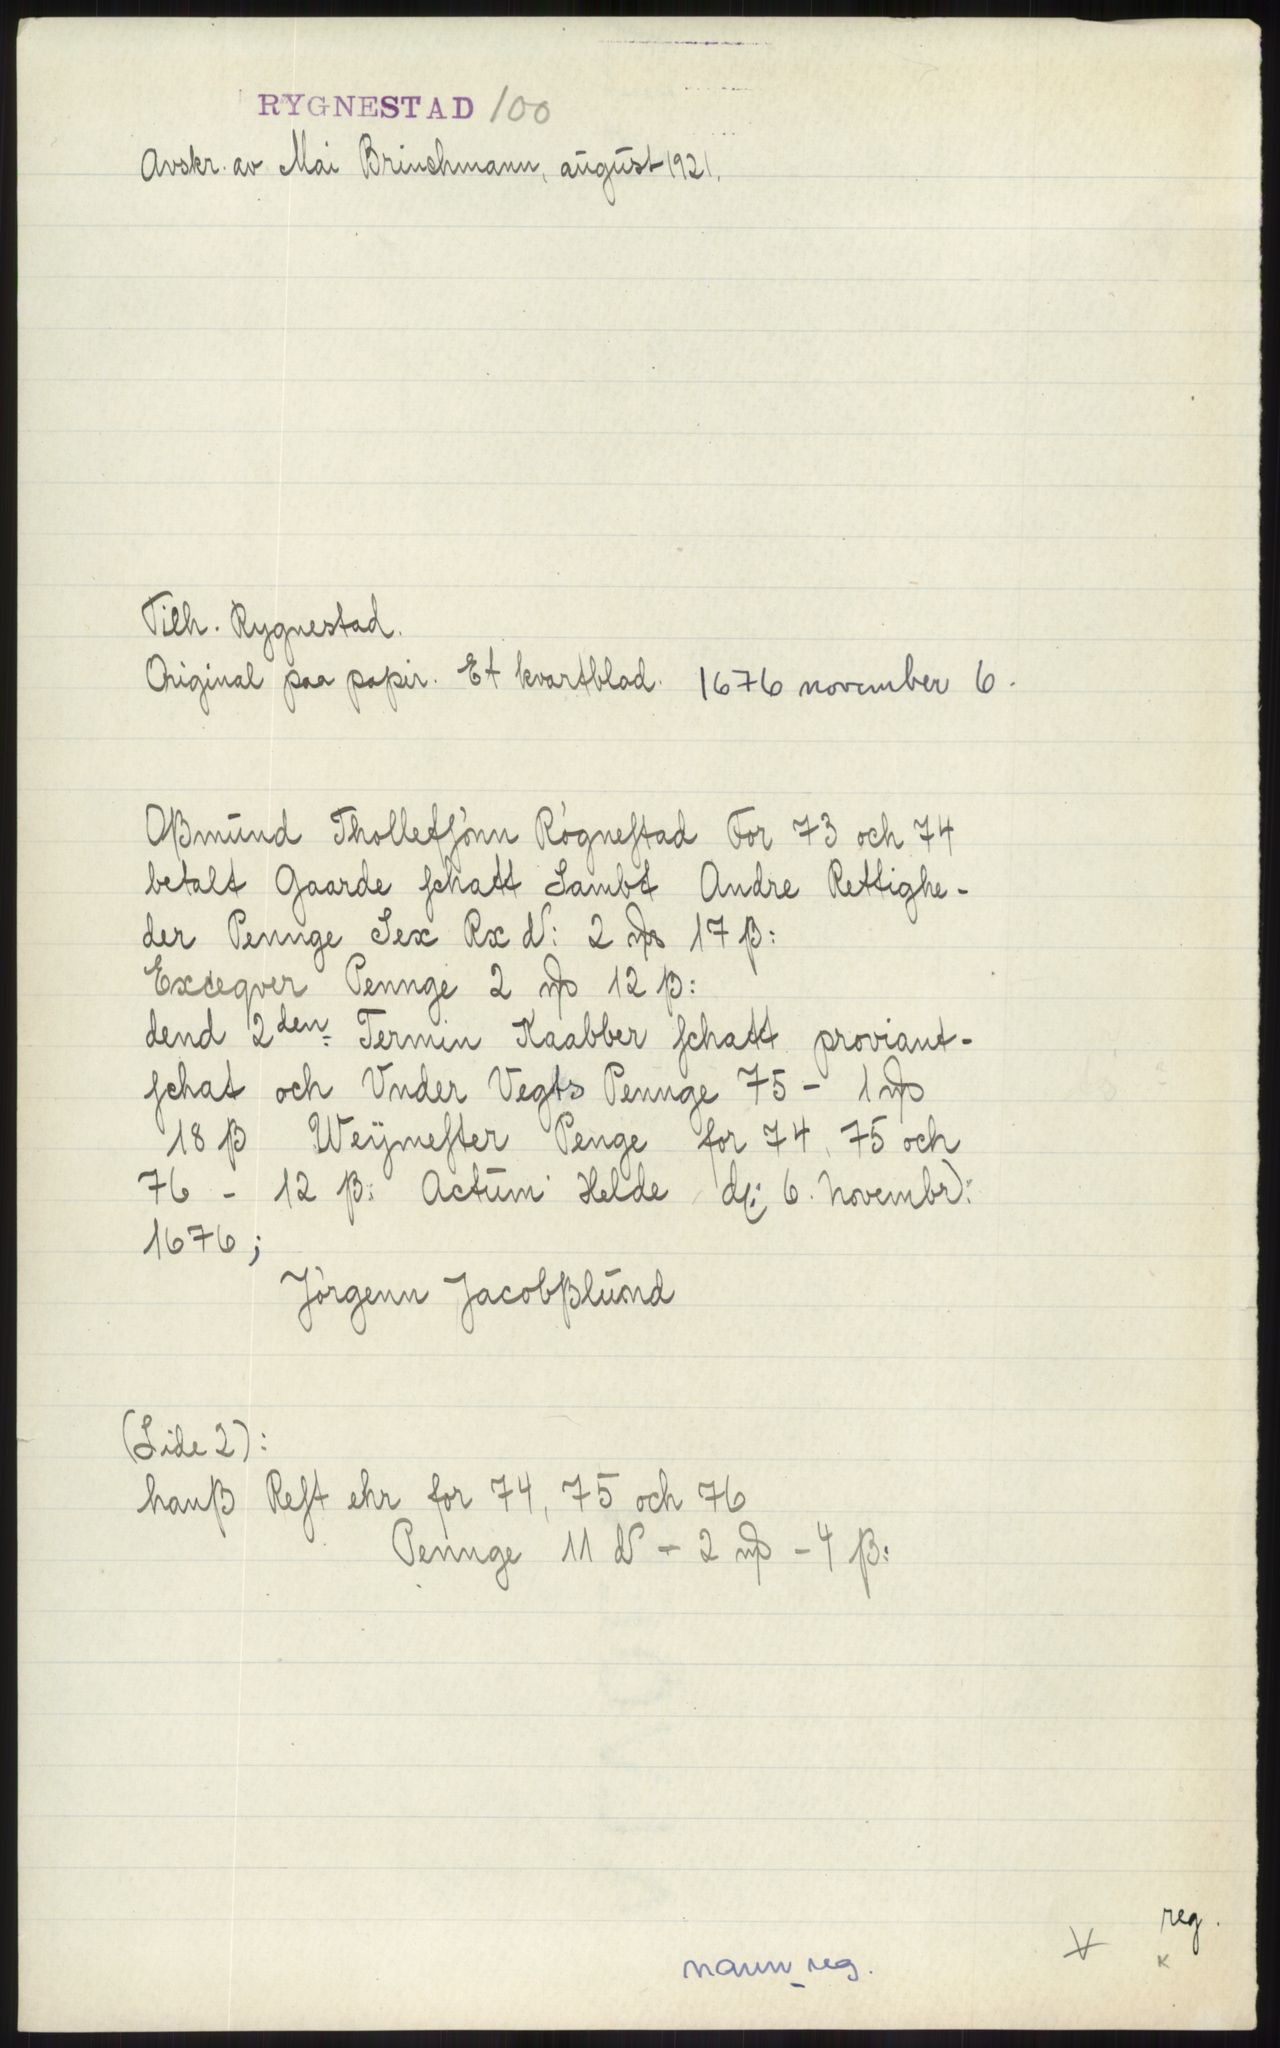 RYGNESTAD 100
Avskr. av Mai Brinchmann, august 1921.
Tilh. Rygnestad.
Original paa papir. Et kvartblad. 1676 november 6.
Oßmund Tholletsönn Rögnestad For 73 och 74
betalt Gaarde schatt Sambt Andre Rettighe-
der Pennge Sex Rx d: 2 mß 17 β:
Exceqver Pennge 2 mß 12 β:
dend 2den Termin Kaabber schatt proviant-
schat och Vnder Vegts Pennge 75 - 1 mß
18 β Weÿmester Penge for 74, 75 och
76 - 12 β: Actum Helde d: 6. Novembr:
1676;
Jörgenn Jacobßlund
(Side 2):
hanß Rest ehr for 74, 75 och 76
Pennge 11 d - 2 mß - 4 β:
reg.
navn reg.